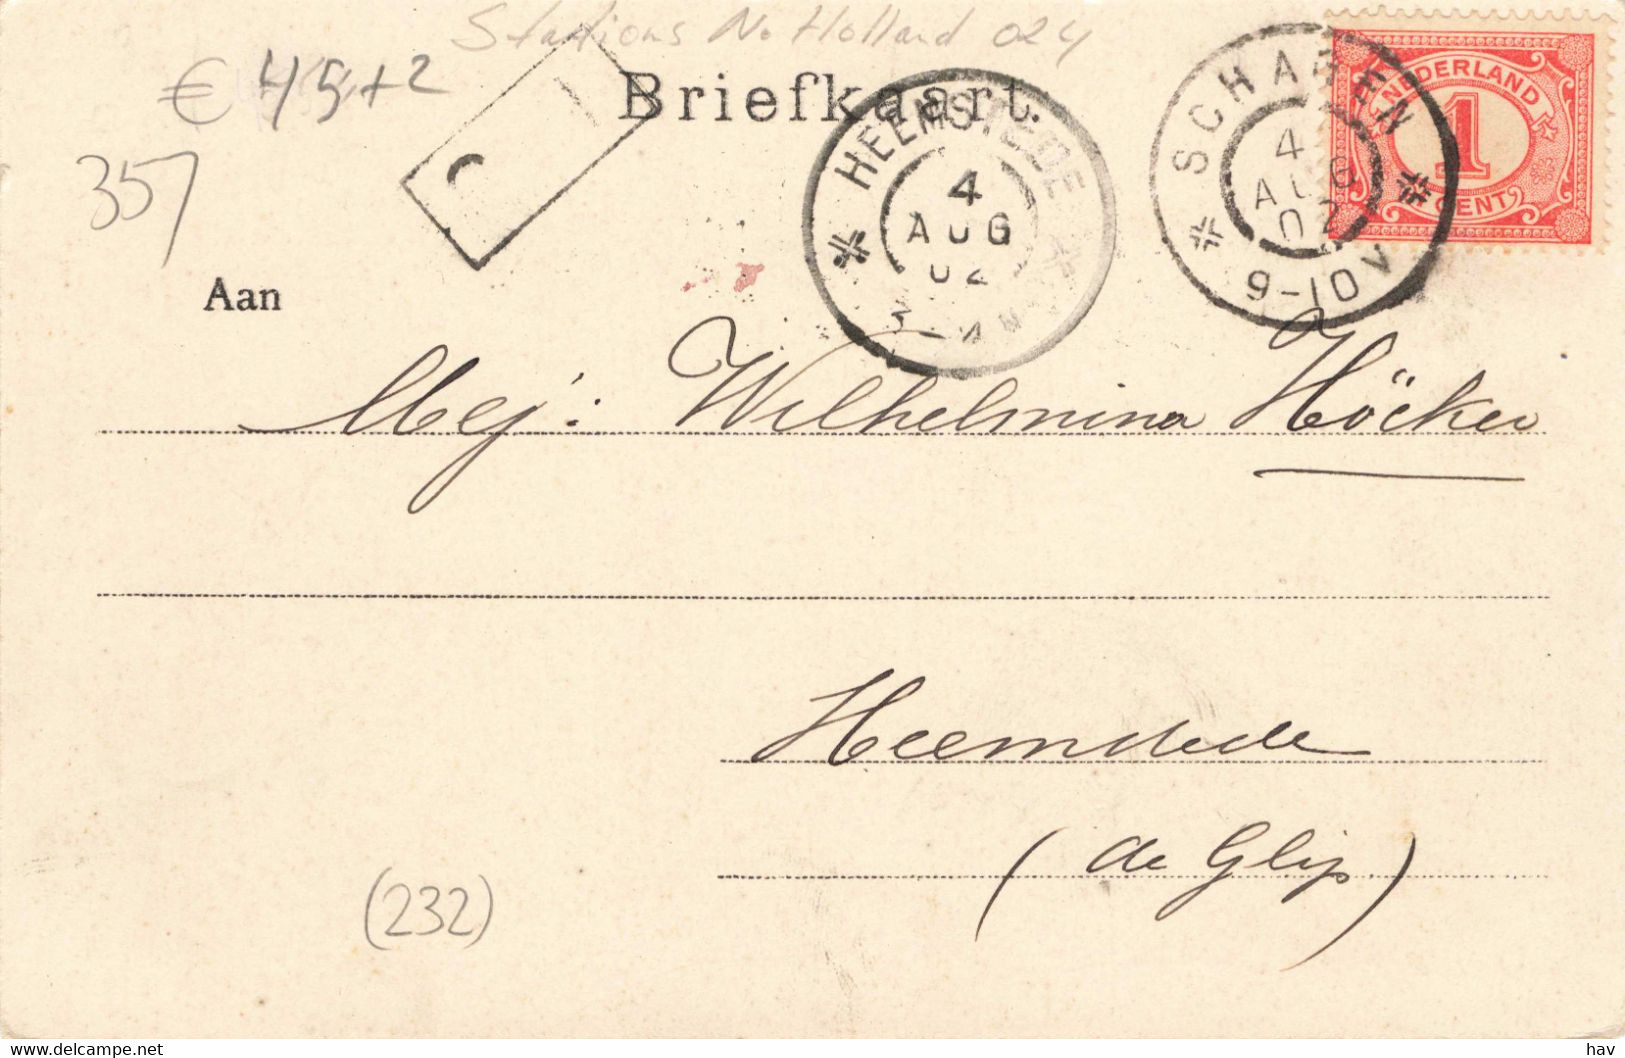 Stations No Holland 024
€ 45+2
Briefkaart.
357
HEEMSTEDE
4
AUG
02
3-4 N
SCHAGEN
4
AUG
02
9-10V
NEDERLAND
1
CENT
Aan
Mej: Wilhelmina Höcker
Heemstede
(de Glip)
(232)
www.delcampe.net
hav